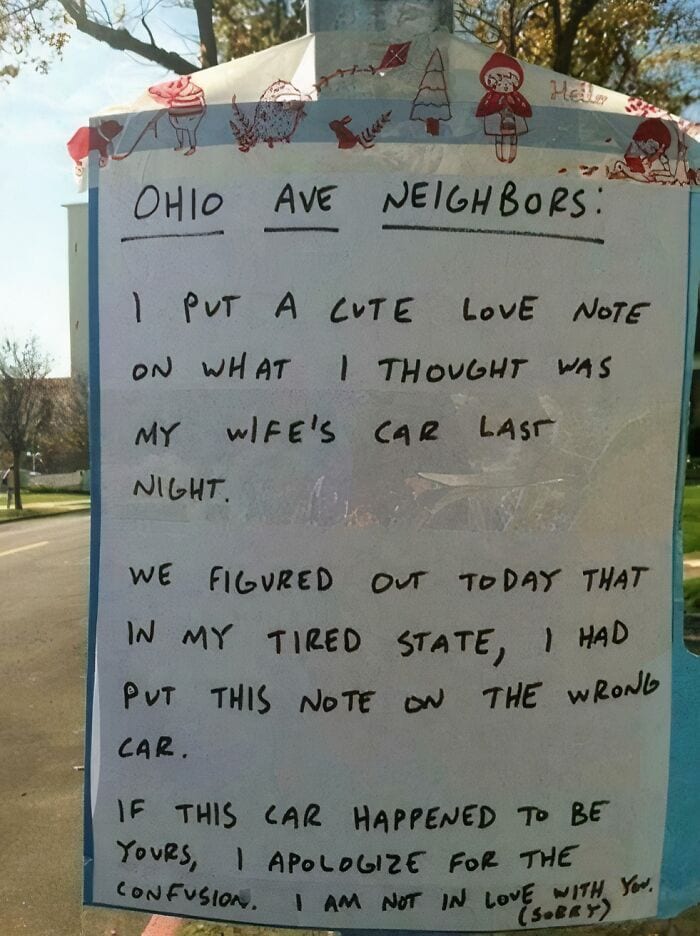 Hello
OHIO AVE NEIGHBORS:
I PUT A CUTE LOVE NOTE
ON WHAT I THOUGHT WAS
MY WIFE'S CAR LAST
NIGHT.
WE FIGURED OUT TODAY THAT
IN MY TIRED STATE, I HAD
PUT THIS NOTE ON THE WRONG
CAR.
IF THIS CAR HAPPENED TO BE
YOURS, I APOLOGIZE FOR THE
CONFUSION. I AM NOT IN LOVE WITH YOU.
(SORRY)